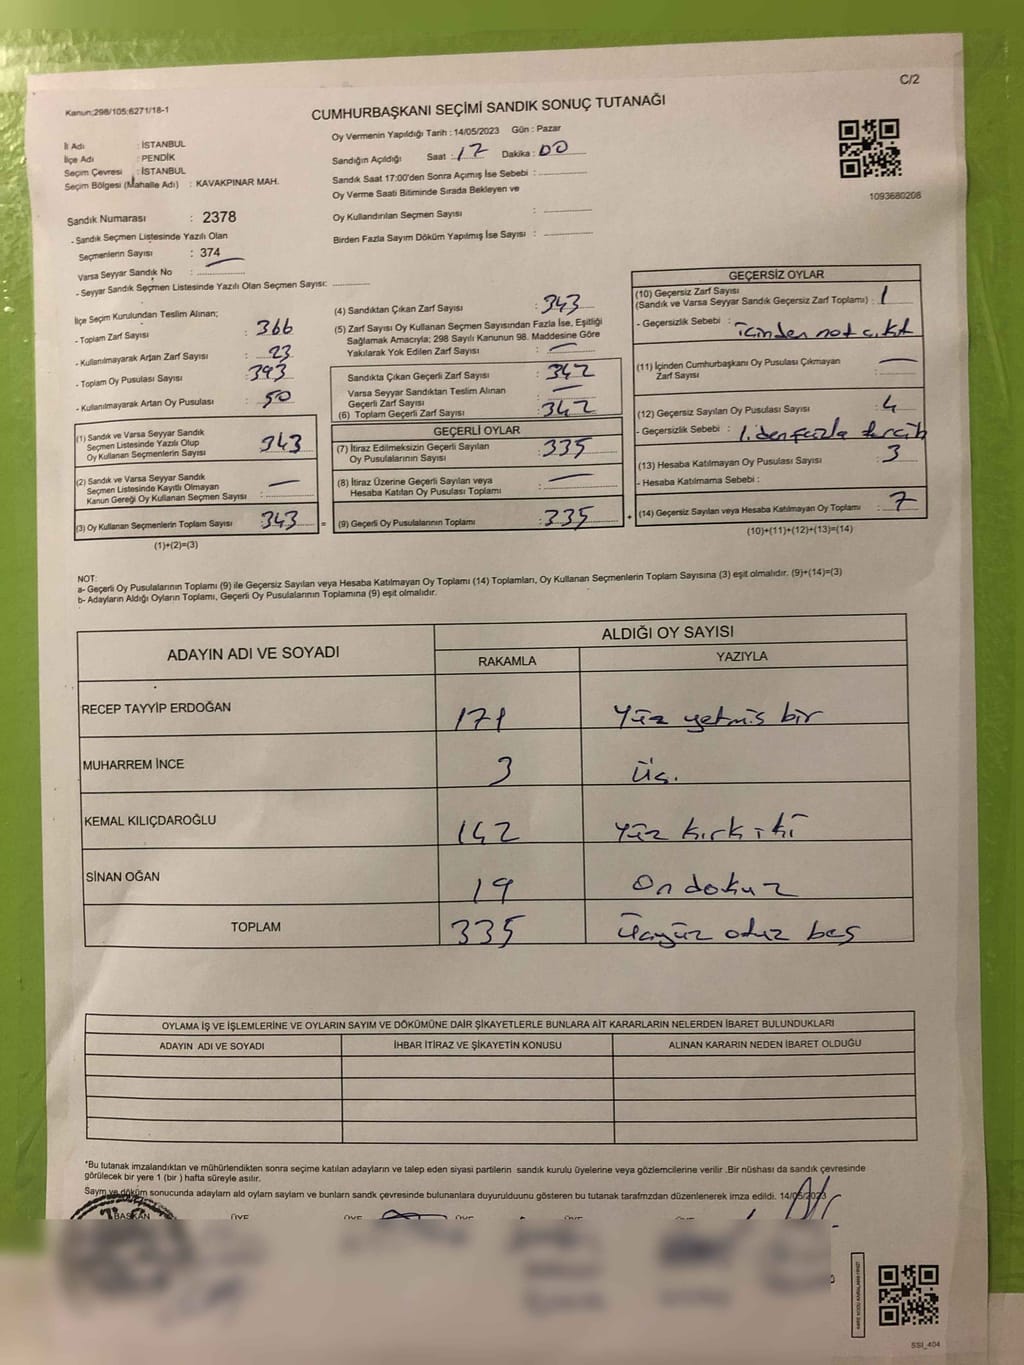 C/2
Kanun:298/105;6271/18-1
CUMHURBAŞKANI SEÇİMİ SANDIK SONUÇ TUTANAĞI
İl Adı : İSTANBUL
İlçe Adı : PENDİK
Seçim Çevresi : İSTANBUL
Seçim Bölgesi (Mahalle Adı) : KAVAKPINAR MAH.
Sandık Numarası : 2378
- Sandık Seçmen Listesinde Yazılı Olan
Seçmenlerin Sayısı : 374
Varsa Seyyar Sandık No :
- Seyyar Sandık Seçmen Listesinde Yazılı Olan Seçmen Sayısı:
Oy Vermenin Yapıldığı Tarih : 14/05/2023 Gün : Pazar
Sandığın Açıldığı Saat : 17 Dakika : 00
Sandık Saat 17:00'den Sonra Açımış İse Sebebi :
Oy Verme Saati Bitiminde Sırada Bekleyen ve
Oy Kullandırılan Seçmen Sayısı :
Birden Fazla Sayım Döküm Yapılmış İse Sayısı :
1093680208
İlçe Seçim Kurulundan Teslim Alınan;
- Toplam Zarf Sayısı : 366
- Kullanılmayarak Artan Zarf Sayısı : 23
- Toplam Oy Pusulası Sayısı : 393
- Kullanılmayarak Artan Oy Pusulası : 50
(1) Sandık ve Varsa Seyyar Sandık
Seçmen Listesinde Yazılı Olup
Oy Kullanan Seçmenlerin Sayısı : 343
(2) Sandık ve Varsa Seyyar Sandık
Seçmen Listesinde Kayıtlı Olmayan
Kanun Gereği Oy Kullanan Seçmen Sayısı : —
(3) Oy Kullanan Seçmenlerin Toplam Sayısı : 343 =
(1)+(2)=(3)
(4) Sandıktan Çıkan Zarf Sayısı : 343
(5) Zarf Sayısı Oy Kullanan Seçmen Sayısından Fazla İse, Eşitliği
Sağlamak Amacıyla; 298 Sayılı Kanunun 98. Maddesine Göre
Yakılarak Yok Edilen Zarf Sayısı : —
Sandıkta Çıkan Geçerli Zarf Sayısı : 342
Varsa Seyyar Sandıktan Teslim Alınan
Geçerli Zarf Sayısı : —
(6) Toplam Geçerli Zarf Sayısı : 342
GEÇERLİ OYLAR
(7) İtiraz Edilmeksizin Geçerli Sayılan
Oy Pusulalarının Sayısı : 335
(8) İtiraz Üzerine Geçerli Sayılan veya
Hesaba Katılan Oy Pusulası Toplamı : —
(9) Geçerli Oy Pusulalarının Toplamı : 335 +
GEÇERSİZ OYLAR
(10) Geçersiz Zarf Sayısı
(Sandık ve Varsa Seyyar Sandık Geçersiz Zarf Toplamı) : 1
- Geçersizlik Sebebi : içinden not çıktı
(11) İçinden Cumhurbaşkanı Oy Pusulası Çıkmayan
Zarf Sayısı : —
(12) Geçersiz Sayılan Oy Pusulası Sayısı : 4
- Geçersizlik Sebebi : 1. den fazla tercih
(13) Hesaba Katılmayan Oy Pusulası Sayısı : 3
- Hesaba Katılmama Sebebi :
(14) Geçersiz Sayılan veya Hesaba Katılmayan Oy Toplamı : 7
(10)+(11)+(12)+(13)=(14)
NOT:
a- Geçerli Oy Pusulalarının Toplamı (9) ile Geçersiz Sayılan veya Hesaba Katılmayan Oy Toplamı (14) Toplamları, Oy Kullanan Seçmenlerin Toplam Sayısına (3) eşit olmalıdır. (9)+(14)=(3)
b- Adayların Aldığı Oyların Toplamı, Geçerli Oy Pusulalarının Toplamına (9) eşit olmalıdır.
ADAYIN ADI VE SOYADI ALDIĞI OY SAYISI
RAKAMLA YAZIYLA
RECEP TAYYİP ERDOĞAN 171 Yüz yetmis bir
MUHARREM İNCE 3 üç.
KEMAL KILIÇDAROĞLU 142 Yüz kırk iki
SİNAN OĞAN 19 On dokuz
TOPLAM 335 Üçyüz otuz beş
OYLAMA İŞ VE İŞLEMLERİNE VE OYLARIN SAYIM VE DÖKÜMÜNE DAİR ŞİKAYETLERLE BUNLARA AİT KARARLARIN NELERDEN İBARET BULUNDUKLARI
ADAYIN ADI VE SOYADI İHBAR İTİRAZ VE ŞİKAYETİN KONUSU ALINAN KARARIN NEDEN İBARET OLDUĞU
*Bu tutanak imzalandıktan ve mühürlendikten sonra seçime katılan adayların ve talep eden siyasi partilerin sandık kurulu üyelerine veya gözlemcilerine verilir .Bir nüshası da sandık çevresinde
görülecek bir yere 1 (bir ) hafta süreyle asılır.
Sayım ve döküm sonucunda adaylam ald oylam saylam ve bunlarn sandk çevresinde bulunanlara duyurulduunu gösteren bu tutanak tarafmzdan düzenlenerek imza edildi. 14/05/2023
BAŞKAN ÜYE ÜYE ÜYE ÜYE ÜYE
SSI_404